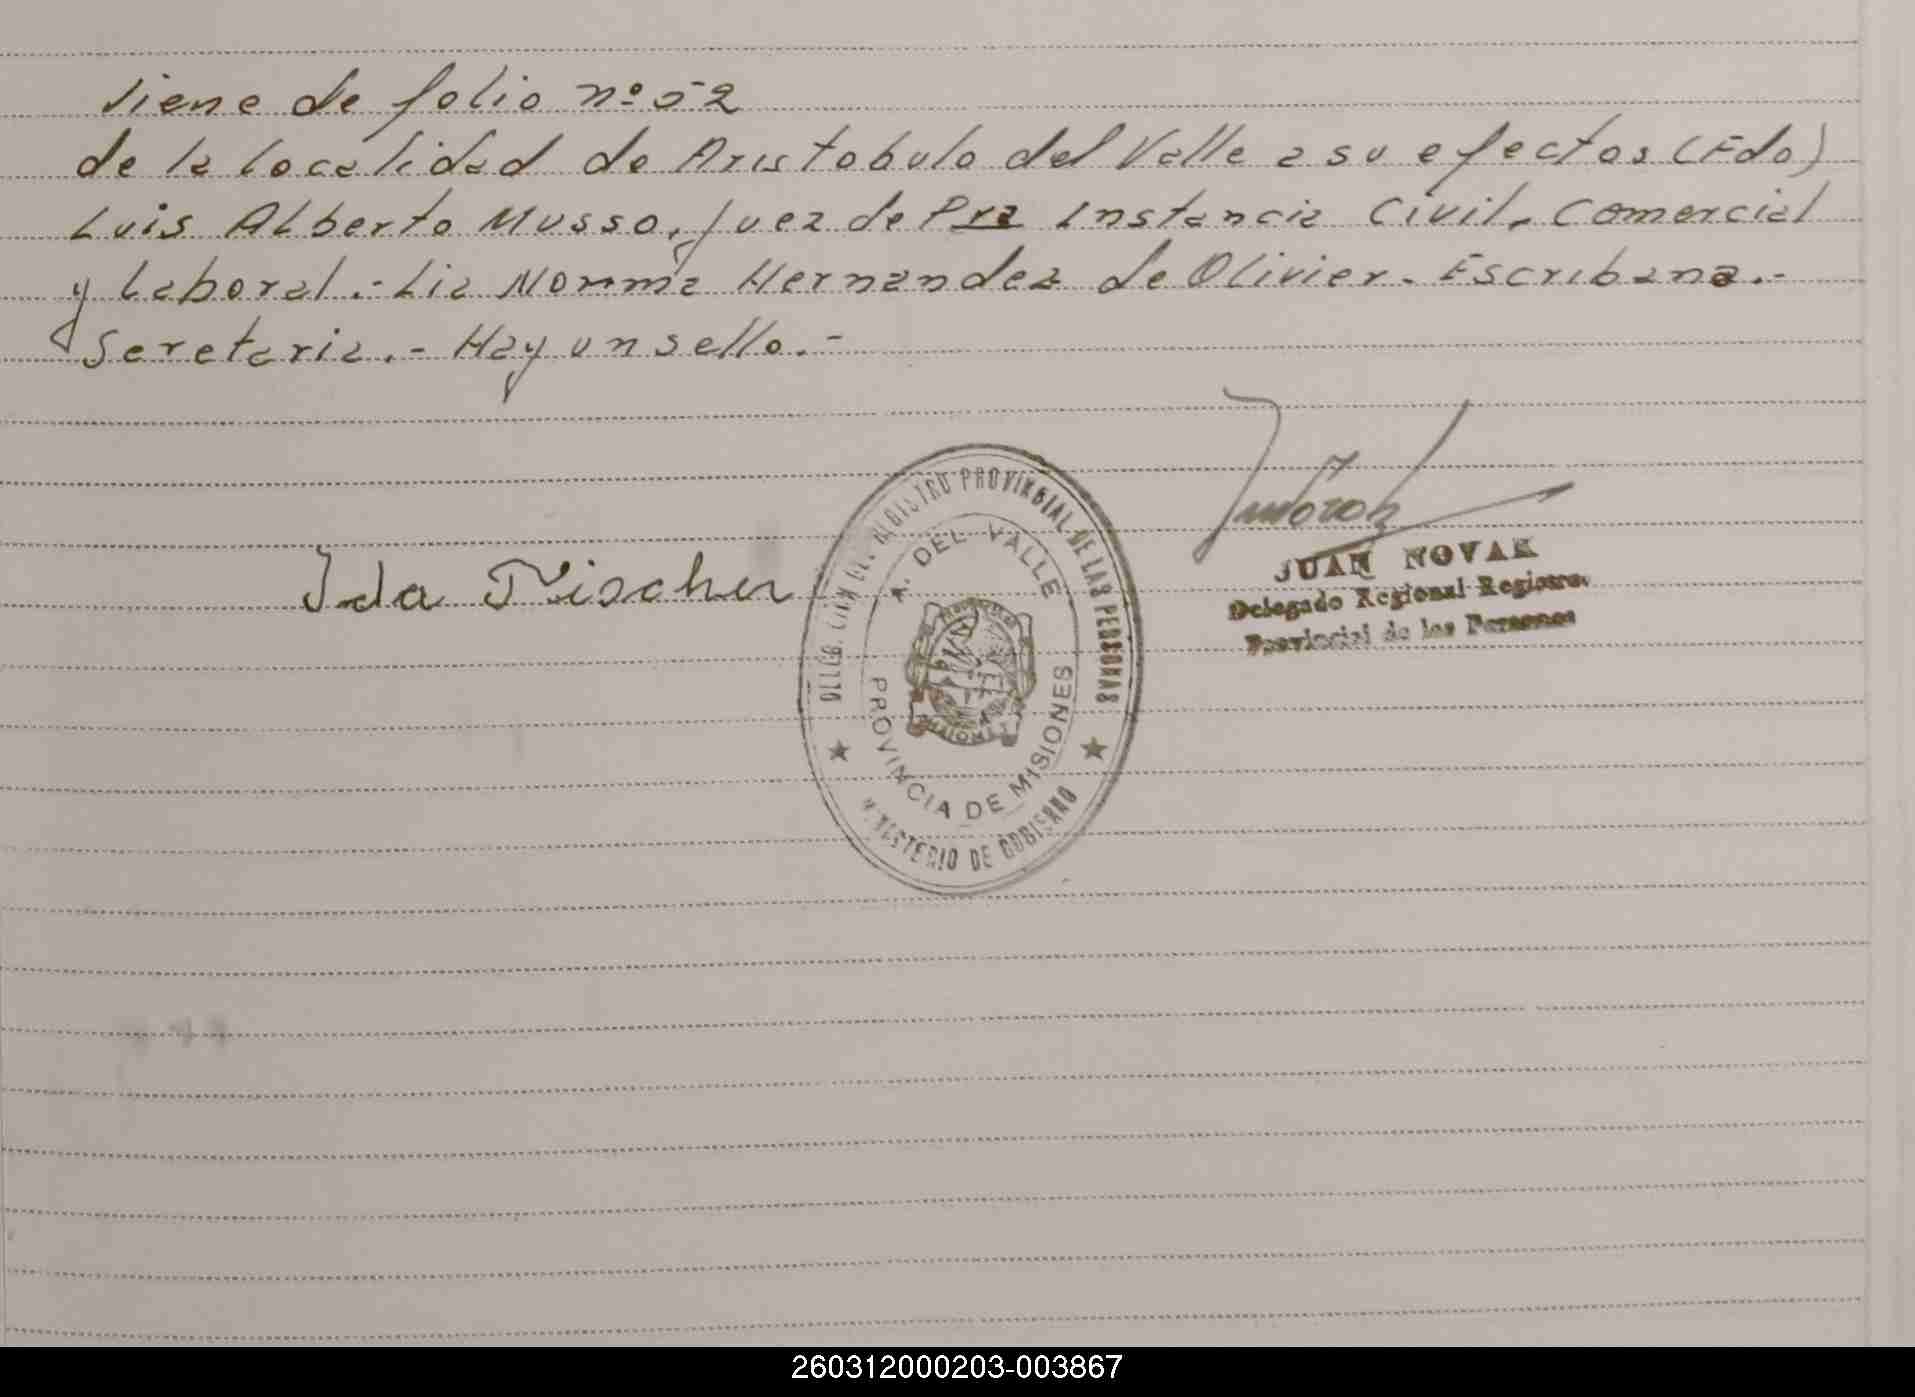 Viene de folio nº 52
de la localidad de Aristobulo del Valle a su efectos (Fdo)
Luis Alberto Musso, Juez de Pra Instancia Civil, Comercial
y laboral.- Lia Norma Hernandez de Olivier. Escribana.-
Seretaria.- Hay un sello.-
Ida Fischer
REGISTRO PROVINCIAL DE LAS PERSONAS
A. DEL VALLE
PROVINCIA DE MISIONES
MINISTERIO DE GOBIERNO
JUAN NOVAK
Delegado Regional Registro
Provincial de las Personas
260312000203-003867